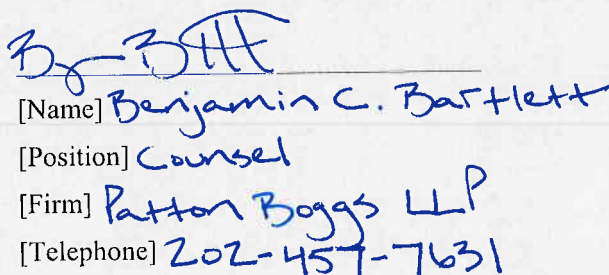 [Name] Benjamin C. Bartlett
[Position] Counsel
[Firm] Patton Boggs LLP
[Telephone] 202-457-7631